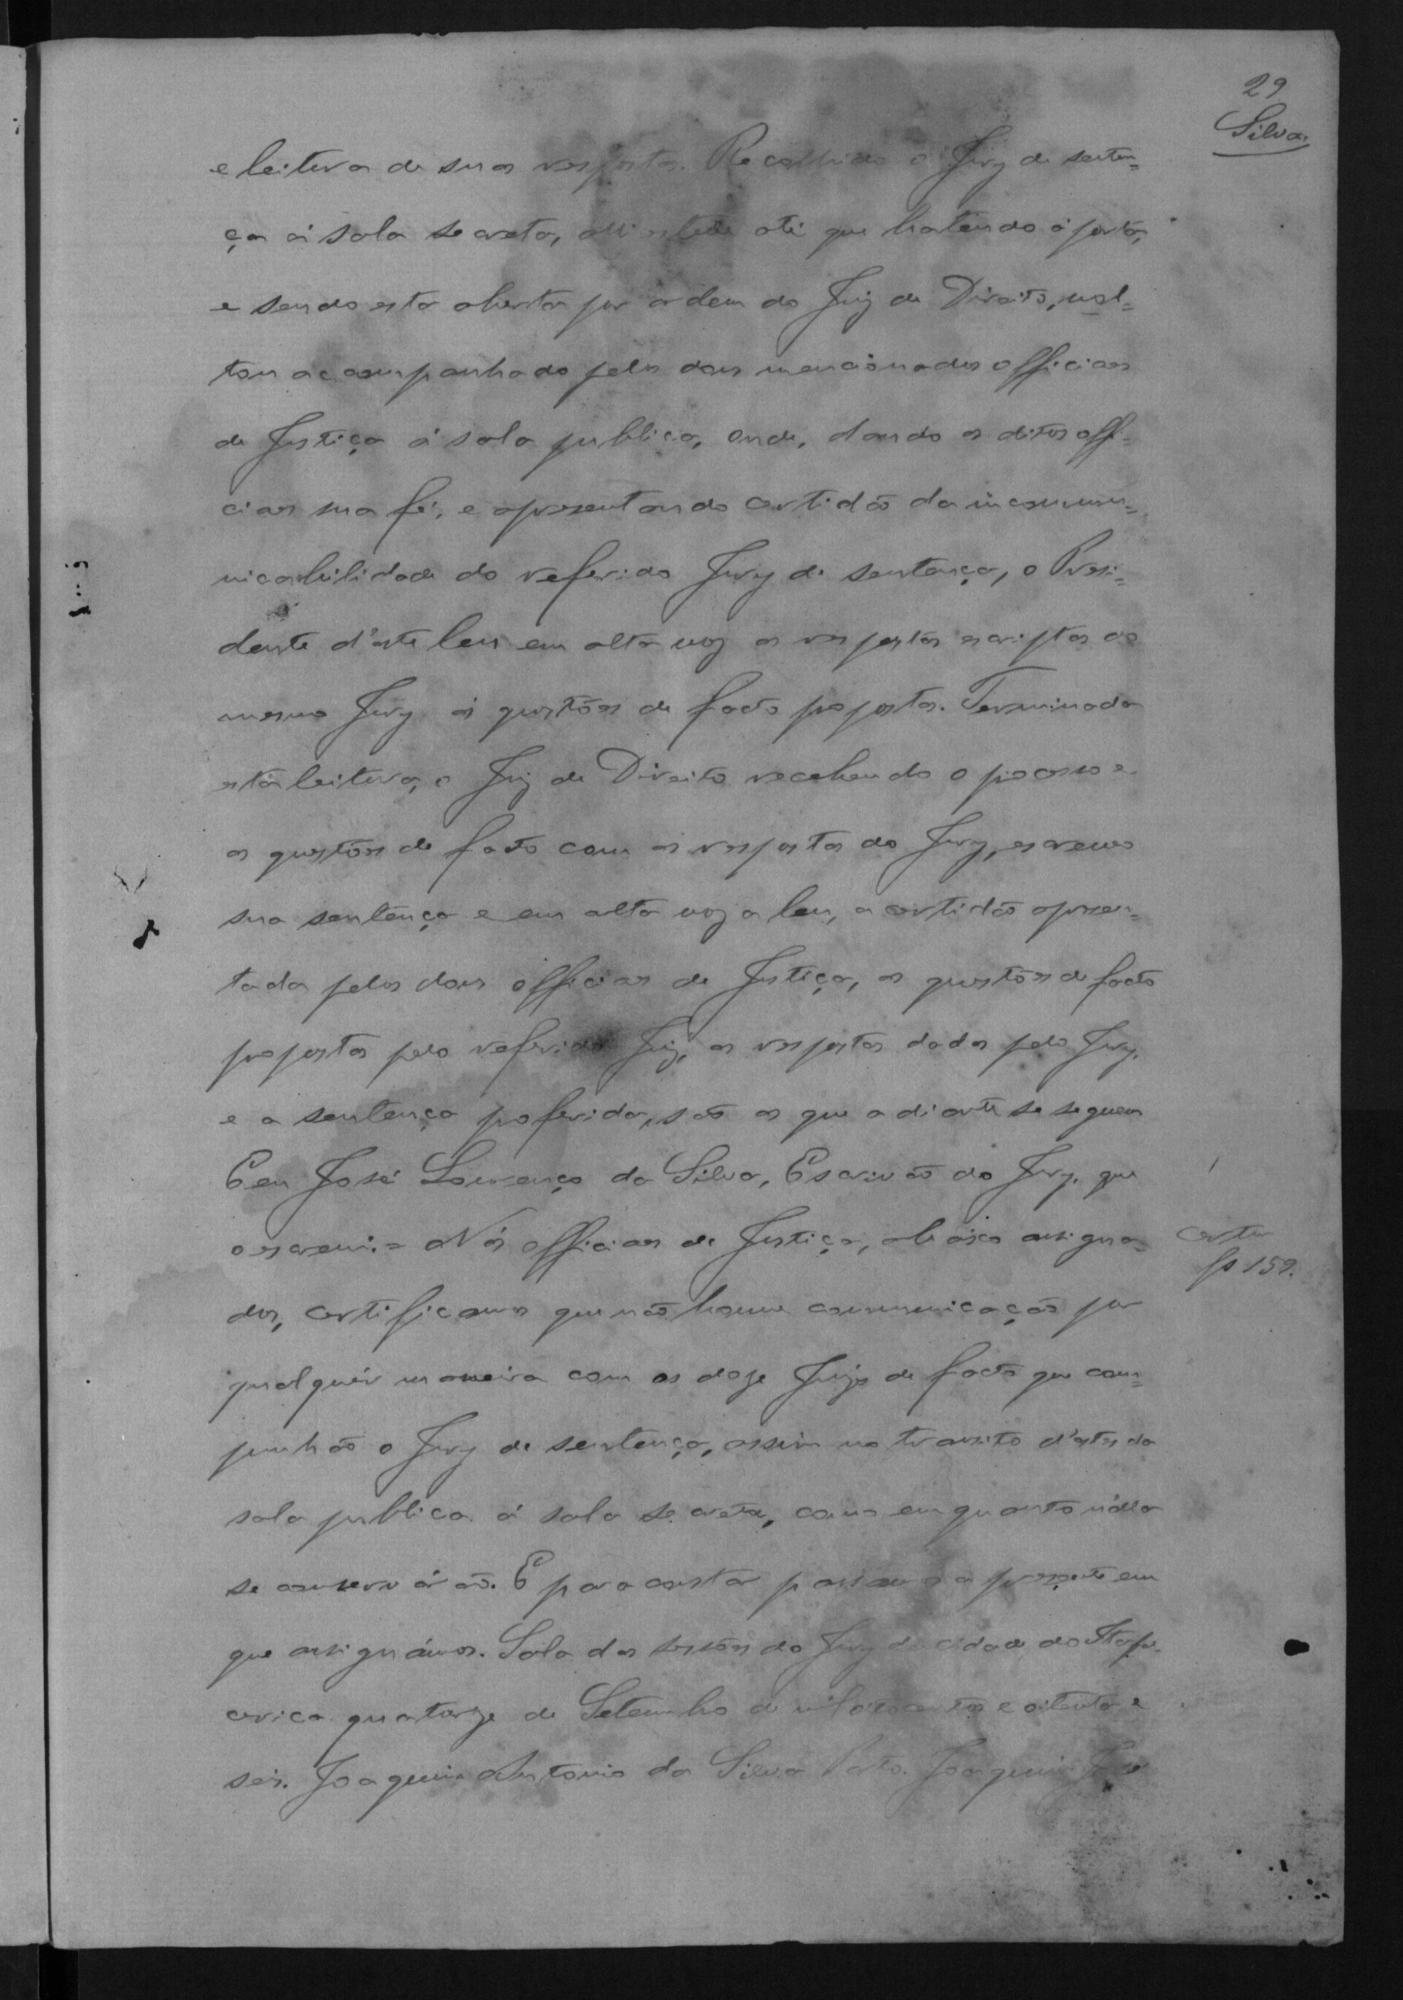 29
Silva.
e leitura de suas respostas. Recolhido o Jury de senten=
ça á sala secreta, alli esteve até que batendo á porta,
e sendo esta aberta por ordem do Juiz de Direito, vol=
tou acompanhado pelos dous mencionados officiaes
de Justiça á sala publica, onde, dando os ditos offi=
ciaes sua fé, e apresentando certidão da incommu=
nicabilidade do referido Jury de sentença, o Presi=
dente d'este leu em alta voz as respostas escriptas do
mesmo Jury ás questões de facto propostas. Terminada
esta leitura, o Juiz de Direito recebendo o processo e
as questões de facto com as respostas do Jury, escreveo
sua sentença e em alta voz a leu, a certidão apresen=
tada pelos dous officiaes de Justiça, as questões de facto
propostas pelo referido Juiz, as respostas dadas pelo Jury,
e a sentença proferida, são as que adiante se seguem
E eu José Lourenço da Silva, Escrivão do Jury, que
o escrevi = Nós officiaes de Justiça, abaixo assigna=
dos, certificamos que não houve communicação por
qualquér maneira com os doze Juizes de facto que com=
punhão o Jury de sentença, assim no transito d'estes da
sala publica á sala secreta, como em quanto nélla
se conservárão. E para constar passamos a presente em
que assignámos. Sala das sessões do Jury da cidade de Itape=
cerica quatorze de Setembro de mil oitocentos e oitenta e
seis. Joaquim Antonio da Silva Porto. Joaquim José
fs 159.